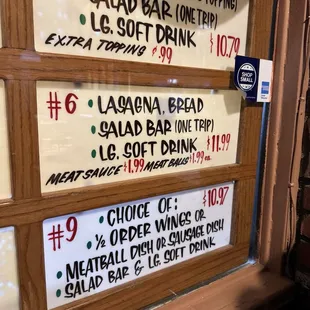 SALAD BAR (ONE TRIP)
• LG. SOFT DRINK $10.79
EXTRA TOPPING $.99
SHOP
SMALL
#6 • LASAGNA, BREAD
• SALAD BAR (ONE TRIP)
• LG. SOFT DRINK $11.99
MEAT SAUCE $1.99 MEAT BALLS $1.99 EA.
#9 • CHOICE OF: $10.97
• ½ ORDER WINGS OR
• MEATBALL DISH OR SAUSAGE DISH
• SALAD BAR & LG. SOFT DRINK